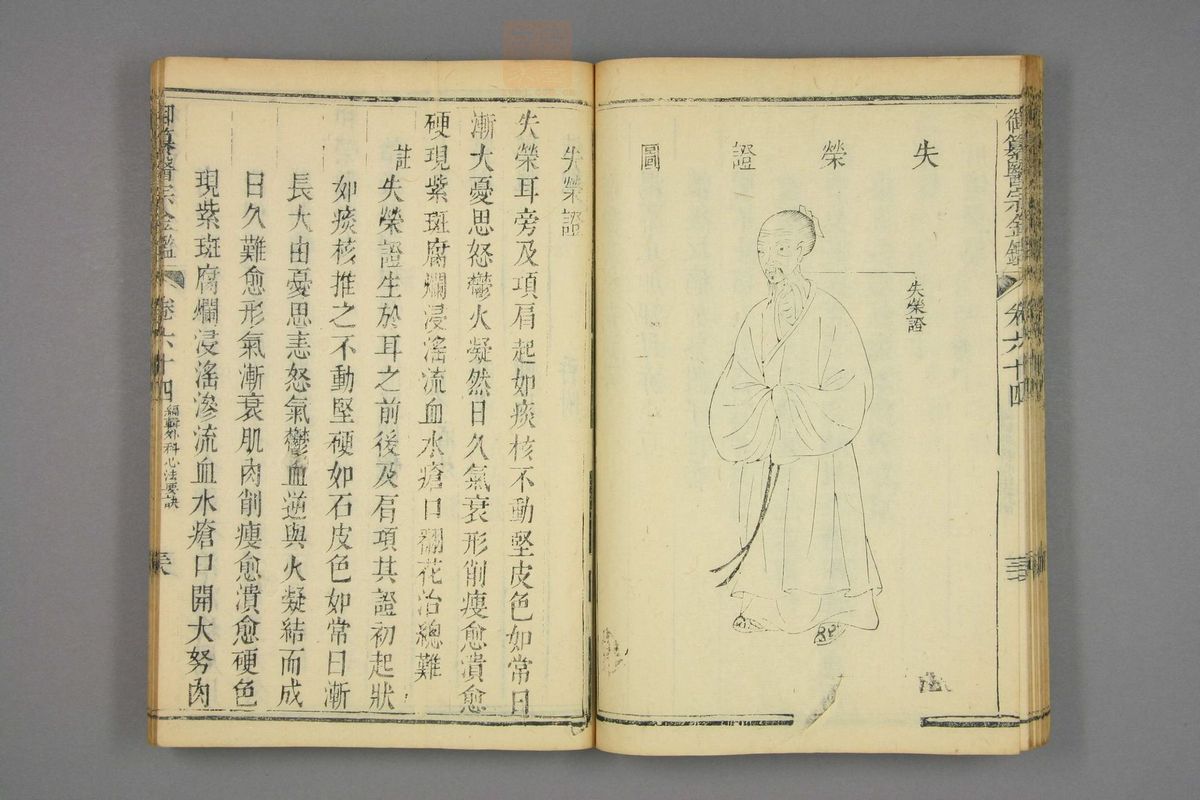 御纂醫宗金鑑 卷六十四
失榮證圖
失榮證
失榮證
失榮耳旁及項肩起如痰核不動堅皮色如常日
漸大憂思怒鬱火凝然日久氣衰形削瘦愈潰愈
硬現紫斑腐爛浸淫流血水瘡口翻花治總難
註 失榮證生於耳之前後及肩項其證初起狀
如痰核推之不動堅硬如石皮色如常日漸
長大由憂思恚怒氣鬱血逆與火凝結而成
日久難愈形氣漸衰肌肉削瘦愈潰愈硬色
現紫斑腐爛浸淫滲流血水瘡口開大努肉
御纂醫宗金鑑 卷六十四 編輯外科心法要訣